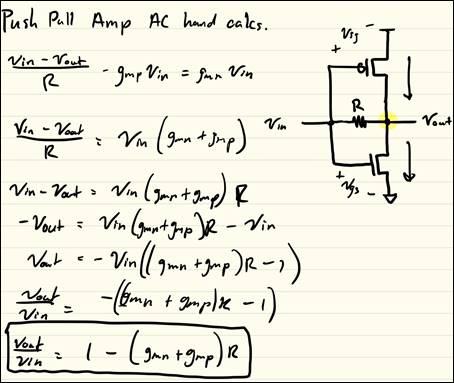 Push Pull Amp AC hand calcs.
(vin - vout)/R - gmp vin = gmn vin
(vin - vout)/R = vin (gmn + gmp)
vin - vout = vin (gmn + gmp) R
-vout = vin (gmn + gmp)R - vin
vout = -vin((gmn + gmp)R - 1)
vout/vin = -((gmn + gmp)R - 1)
vout/vin = 1 - (gmn + gmp) R
-
+
R
Vin
Vout
+
Vgs -